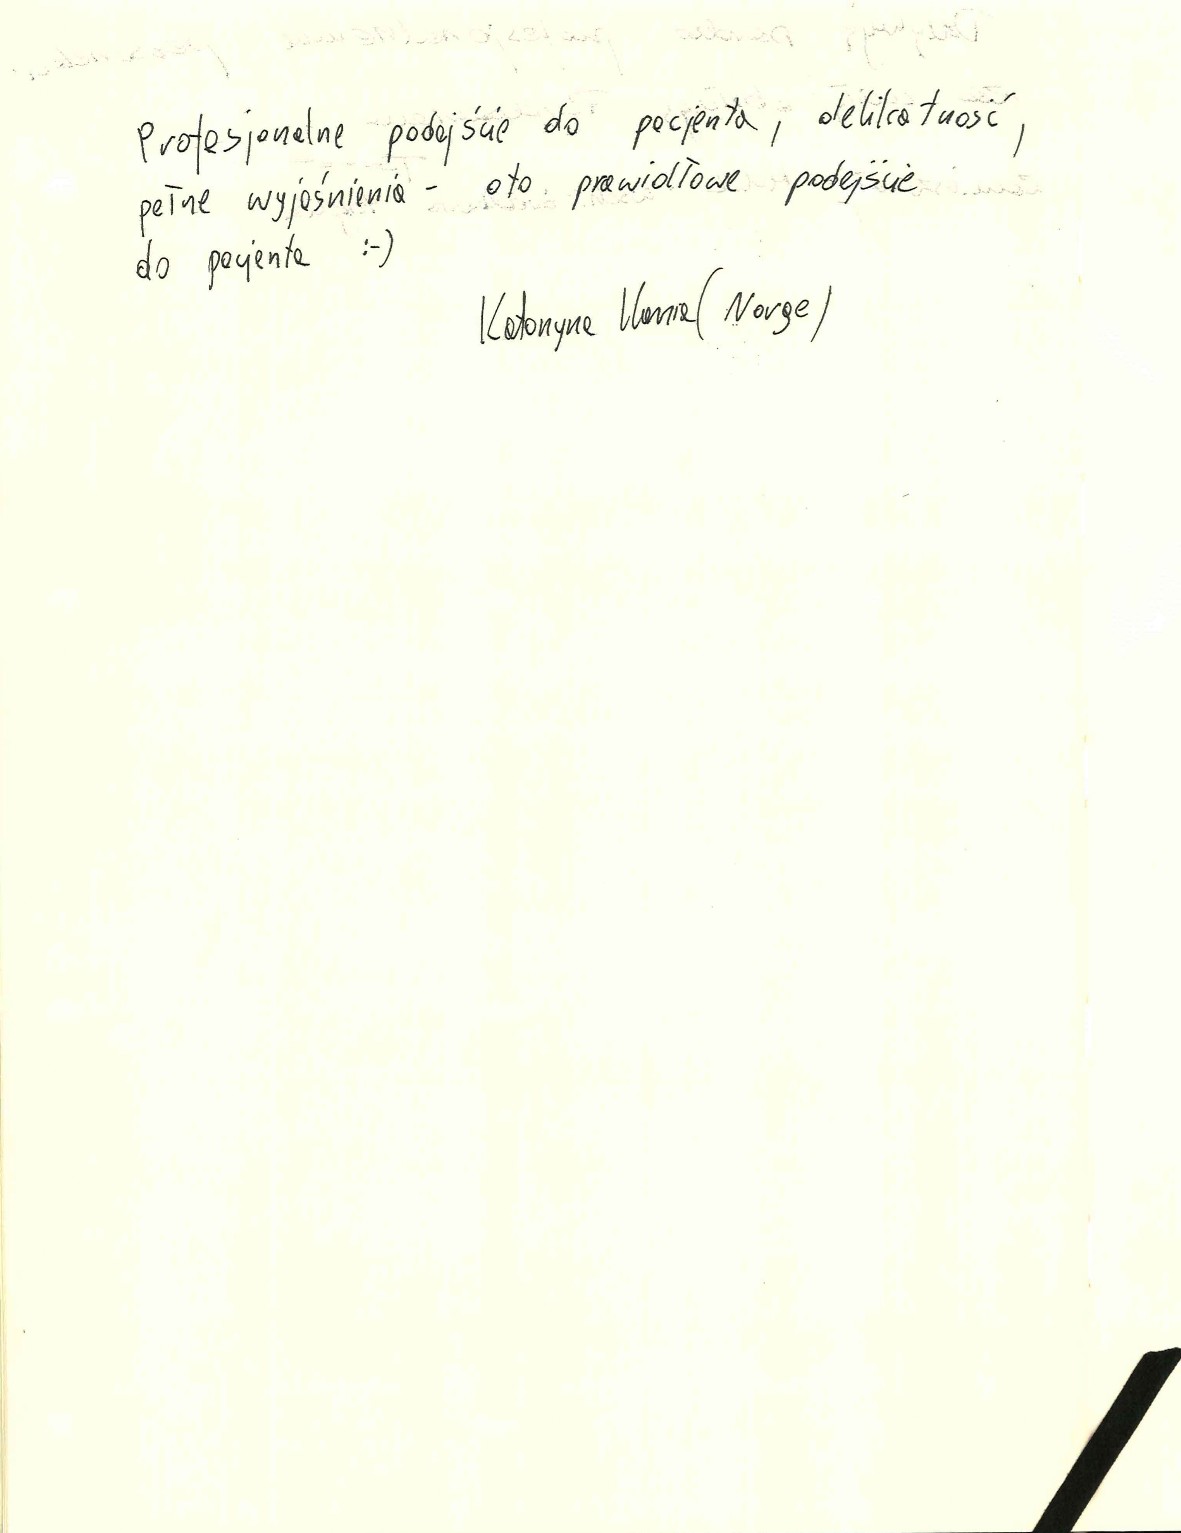 Profesjonalne podejście do pacjenta, delikatność,
pełne wyjaśnienia - oto prawidłowe podejście
do pacjenta :-)
Katarzyna (Norge)